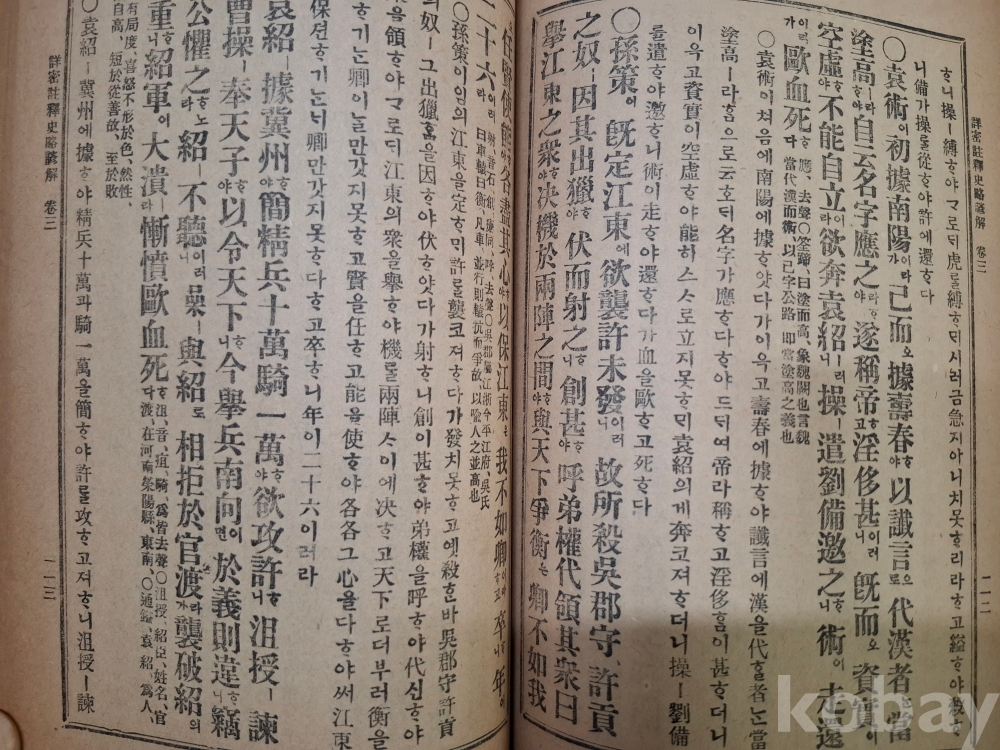 詳密註釋史略諺解 卷三
二一二
ᄒᆞ니 操ㅣ 縛ᄒᆞ야 ᄀᆞ로ᄃᆡ 虎를 縛ᄒᆞᄆᆡ 시러금 急지 아니치 못ᄒᆞ리라 ᄒᆞ고 縊ᄒᆞ야
니 備가 操를 從ᄒᆞ야 許에 還ᄒᆞ다
○袁術이 初據南陽이라가 已而오 據壽春ᄒᆞ야 以讖言으로 代漢者ᄂᆞᆫ 當
塗高ㅣ라ᄒᆞ야 自云名字應之라ᄒᆞ야 遂稱帝ᄒᆞ고 淫侈甚이러니 旣而오 資實이
空虛ᄒᆞ야 不能自立이라 欲奔袁紹ㅣ러니 操ㅣ 遣劉備邀之ᄒᆞ니 術이 走還
이라가 歐血死ᄒᆞ다 應、去聲○筌蹄、曰塗而高、象魏闕也言魏
當代漢而術、以己字公路、即當塗高之義也
○袁術이 처음에 南陽에 據ᄒᆞ얏다가 이윽고 壽春에 據ᄒᆞ야 讖言에 漢을 代ᄒᆞᆯ 者ᄂᆞᆫ 當
塗高ㅣ라 ᄒᆞᆷ으로 云호ᄃᆡ 名字가 應ᄒᆞ다 ᄒᆞ야 드ᄃᆡ여 帝라 稱ᄒᆞ고 淫侈ᄒᆞᆷ이 甚ᄒᆞ더니
이윽고 資實이 空虛ᄒᆞ야 能히 스스로 立지 못ᄒᆞᄆᆡ 袁紹의게 奔코져 ᄒᆞ더니 操ㅣ 劉備
를 遣ᄒᆞ야 邀ᄒᆞ니 術이 走ᄒᆞ야 還ᄒᆞ다가 血을 歐ᄒᆞ고 死ᄒᆞ다
○孫策이 旣定江東에 欲襲許未發이러니 故所殺吳郡守、許貢
之奴ㅣ 因其出獵ᄒᆞ야 伏而射之ᄒᆞ니 創甚ᄒᆞ야 呼弟權代領其衆曰
擧江東之衆ᄒᆞ야 决機於兩陣之間ᄒᆞ야 與天下爭衡은 卿不如我
任賢使能 各盡其心ᄒᆞ야 以保江東은 我不如卿이라ᄒᆞ고 卒ᄒᆞ니 年이
二十六이러라 射、音石、創
曰車轅曰衡、凡車、並行則轅抗而爭故、以喩人之並高也
○孫策이 임의 江東을 定ᄒᆞᄆᆡ 許를 襲코져 ᄒᆞ다가 發치 못ᄒᆞ고 녯 殺ᄒᆞᆫ바 吳郡守許貢
의 奴ㅣ 그 出獵ᄒᆞᆷ을 因ᄒᆞ야 伏ᄒᆞ얏다가 射ᄒᆞ니 創이 甚ᄒᆞ야 弟權을 呼ᄒᆞ야 代신ᄒᆞ야
을 領ᄒᆞ야 ᄀᆞ로ᄃᆡ 江東의 衆을 擧ᄒᆞ야 機를 兩陣ㅅ이에 决ᄒᆞ고 天下로 더부러 衡을
ᄒᆞ기ᄂᆞᆫ 卿이 날만 갓지 못ᄒᆞ고 賢을 任ᄒᆞ고 能을 使ᄒᆞ야 各各 그 心을 다ᄒᆞ야 써 江東
保션ᄒᆞ기ᄂᆞᆫ ᄂᆡ 卿만 갓지 못ᄒᆞ다 ᄒᆞ고 卒ᄒᆞ니 年이 二十六이러라
袁紹ㅣ 據冀州ᄒᆞ야 簡精兵十萬騎一萬ᄒᆞ야 欲攻許ᄒᆞ니 沮授ㅣ 諫
曹操ㅣ 奉天子ᄒᆞ야 以令天下ᄒᆞ니 今擧兵南向이면 於義則違ᄒᆞ니 竊
公懼之ᄒᆞ노라 紹ㅣ 不聽이러니 操ㅣ 與紹로 相拒於官渡라가 襲破紹의
重ᄒᆞ니 紹軍이 大潰ᄒᆞ야 慚憤歐血死ᄒᆞ다 沮、音、疽、騎、去聲○沮授、紹臣、姓名、官
渡、在河南滎陽縣、東南、○通鑑、袁紹、爲人、
有局度、喜怒不形於色、然性、
自高、短於從善故、至於敗
○袁紹ㅣ 冀州에 據ᄒᆞ야 精兵十萬과 騎一萬을 簡ᄒᆞ야 許를 攻ᄒᆞ고져 ᄒᆞ니 沮授ㅣ 諫
詳密註釋史略諺解 卷三
二一三
kobay